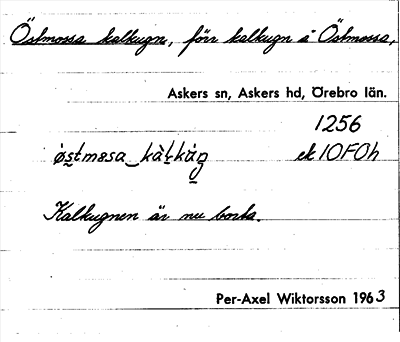 Östmossa kalkugn, förr kalkugn å Östmossa,
Askers sn, Askers hd, Örebro län.
1256
ek 10F0h
Kalkugnen är nu borta.
Per-Axel Wiktorsson 1963